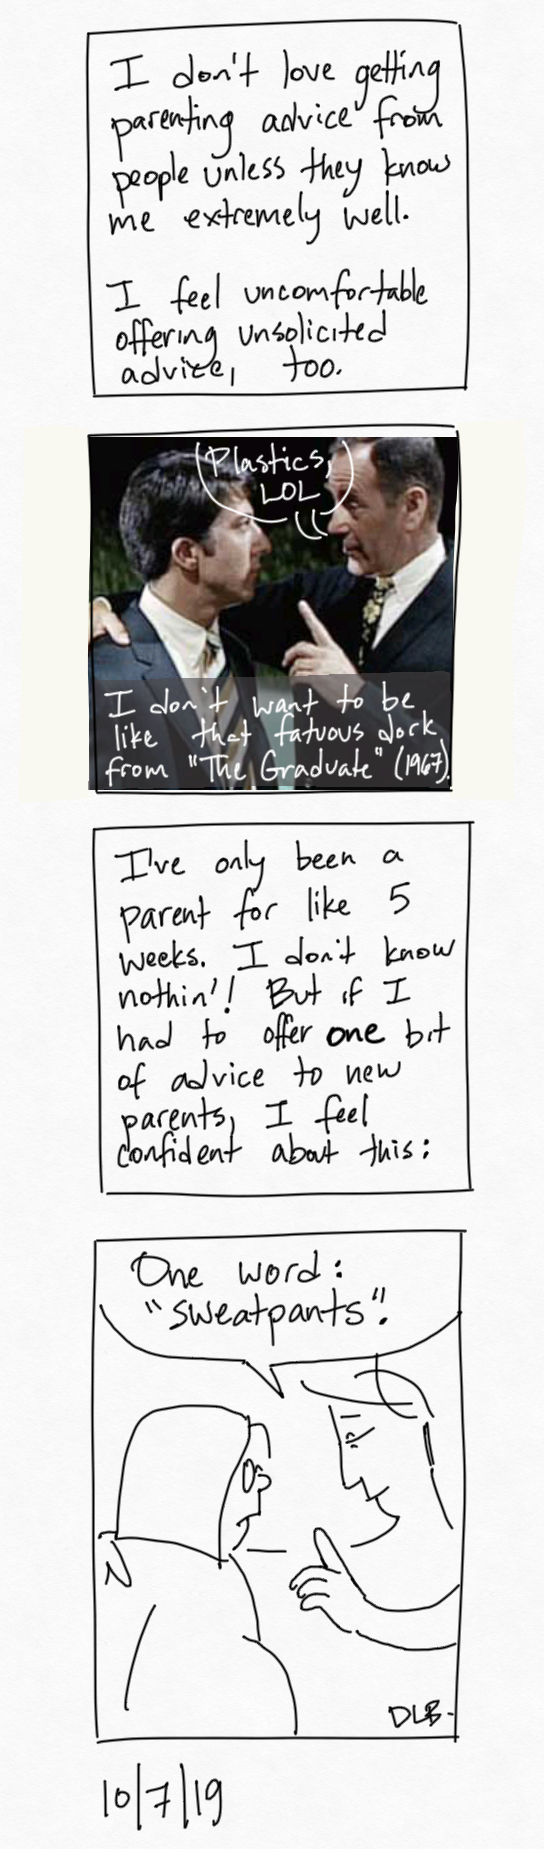 I don't love getting
parenting advice from
people unless they know
me extremely well.
I feel uncomfortable
offering unsolicited
advice, too.
Plastics,
LOL
I don't want to be
like that fatuous dork
from "The Graduate" (1967).
I've only been a
parent for like 5
weeks. I don't know
nothin'! But if I
had to offer one bit
of advice to new
parents, I feel
confident about this:
One word:
"sweatpants".
DLB-
10/7/19